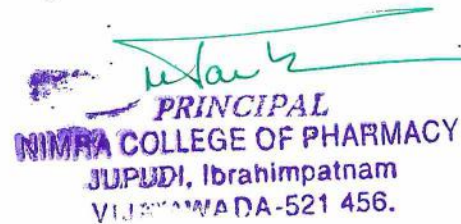 PRINCIPAL
NIMRA COLLEGE OF PHARMACY
JUPUDI, Ibrahimpatnam
VIJAYAWADA-521 456.